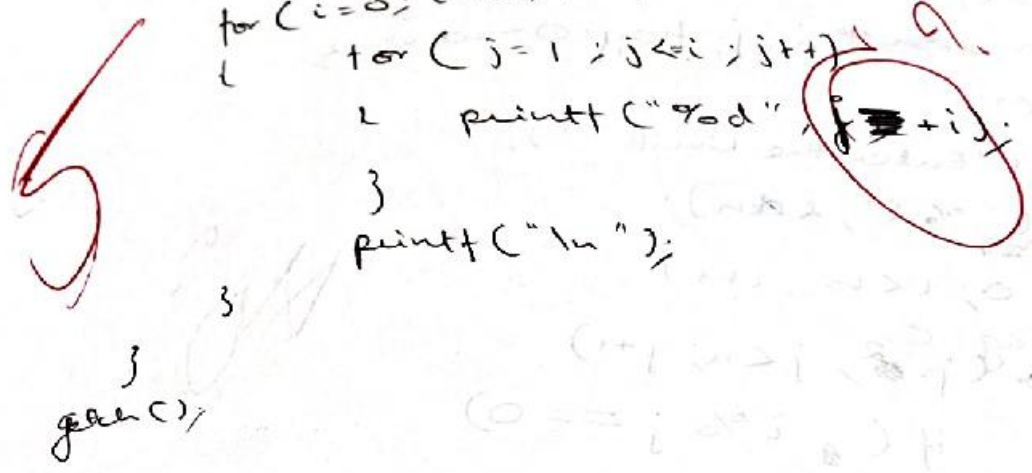 for (i=0;
{ for ( j=1 ; j<=i ; j++)
{ printf ("%d", j + i);
}
printf ("\n");
}
}
getch ();
5
?